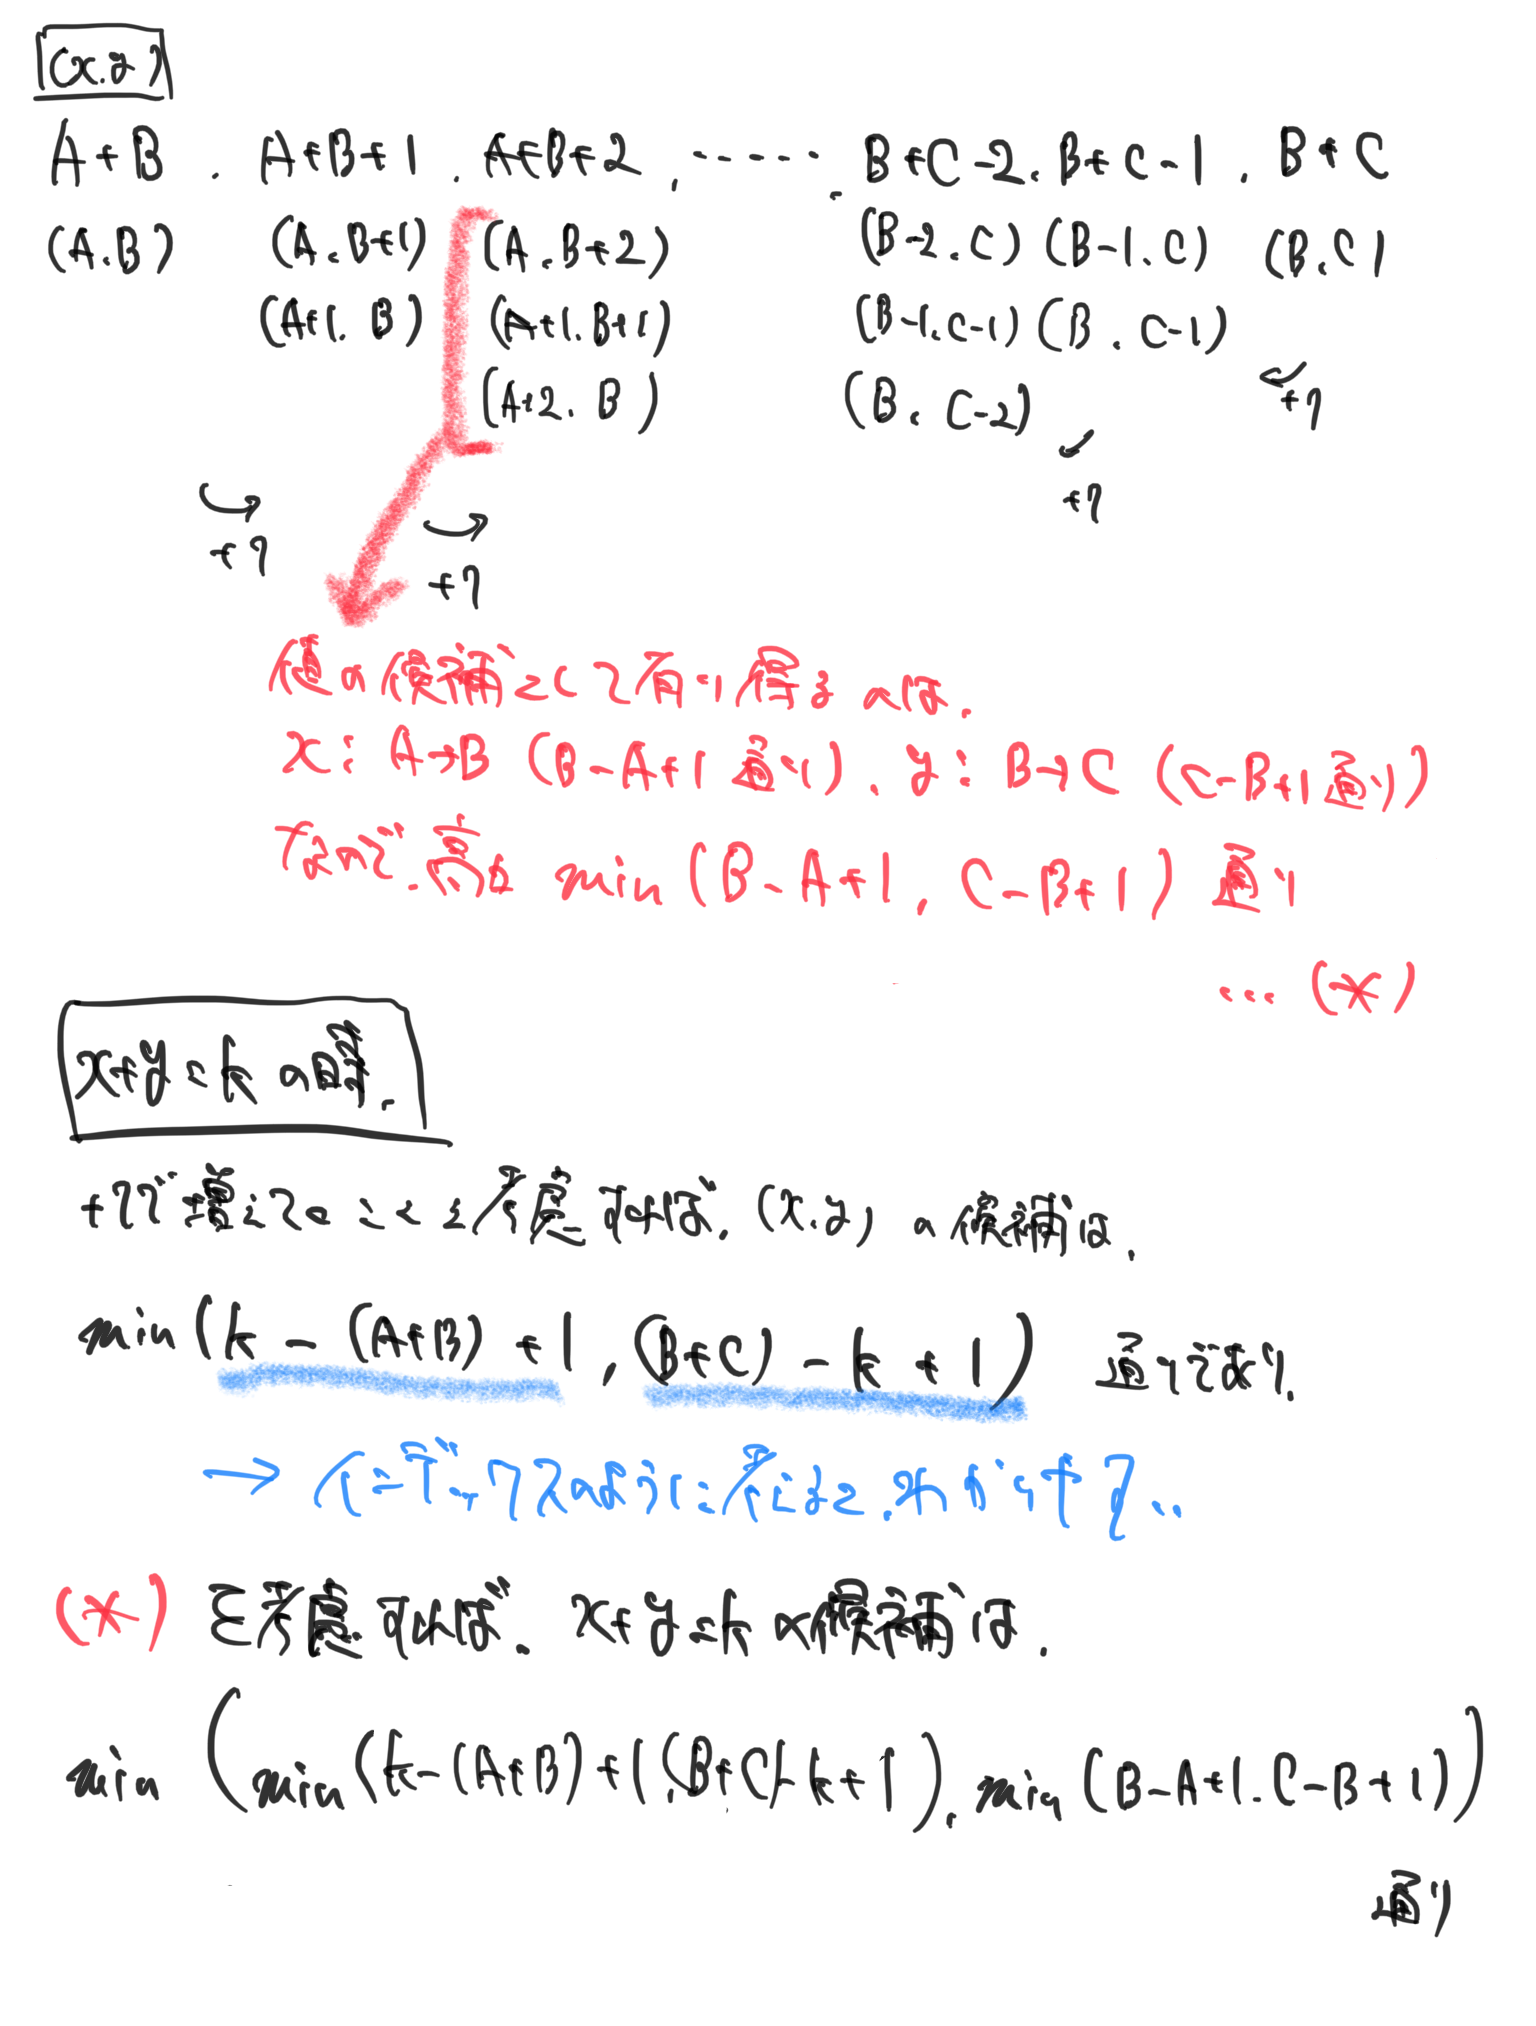 (x.y)
A+B . A+B+1 . A+B+2 , ‥‥‥ . B+C-2 . B+C-1 . B+C
(A.B) (A.B+1) (A.B+2) (B-2.C) (B-1.C) (B.C)
(A+1.B) (A+1.B+1) (B-1.C-1) (B.C-1)
(A+2.B) (B.C-2)
+1 +1
+1 +1
値の候補として有り得るのは.
x: A→B (B-A+1通り). y: B→C (C-B+1通り)
なので.高々 min (B-A+1, C-B+1) 通り
… (*)
x+y=k の時.
+1で増えてくことを考慮すれば. (x.y) の候補は.
min (k-(A+B)+1, (B+C)-k+1) 通りであり.
→ インデックスのように考えると.わかりやすい..
(*) を考慮すれば. x+y=k の候補は.
min (min(k-(A+B)+1,(B+C)-k+1). min (B-A+1.C-B+1))
通り